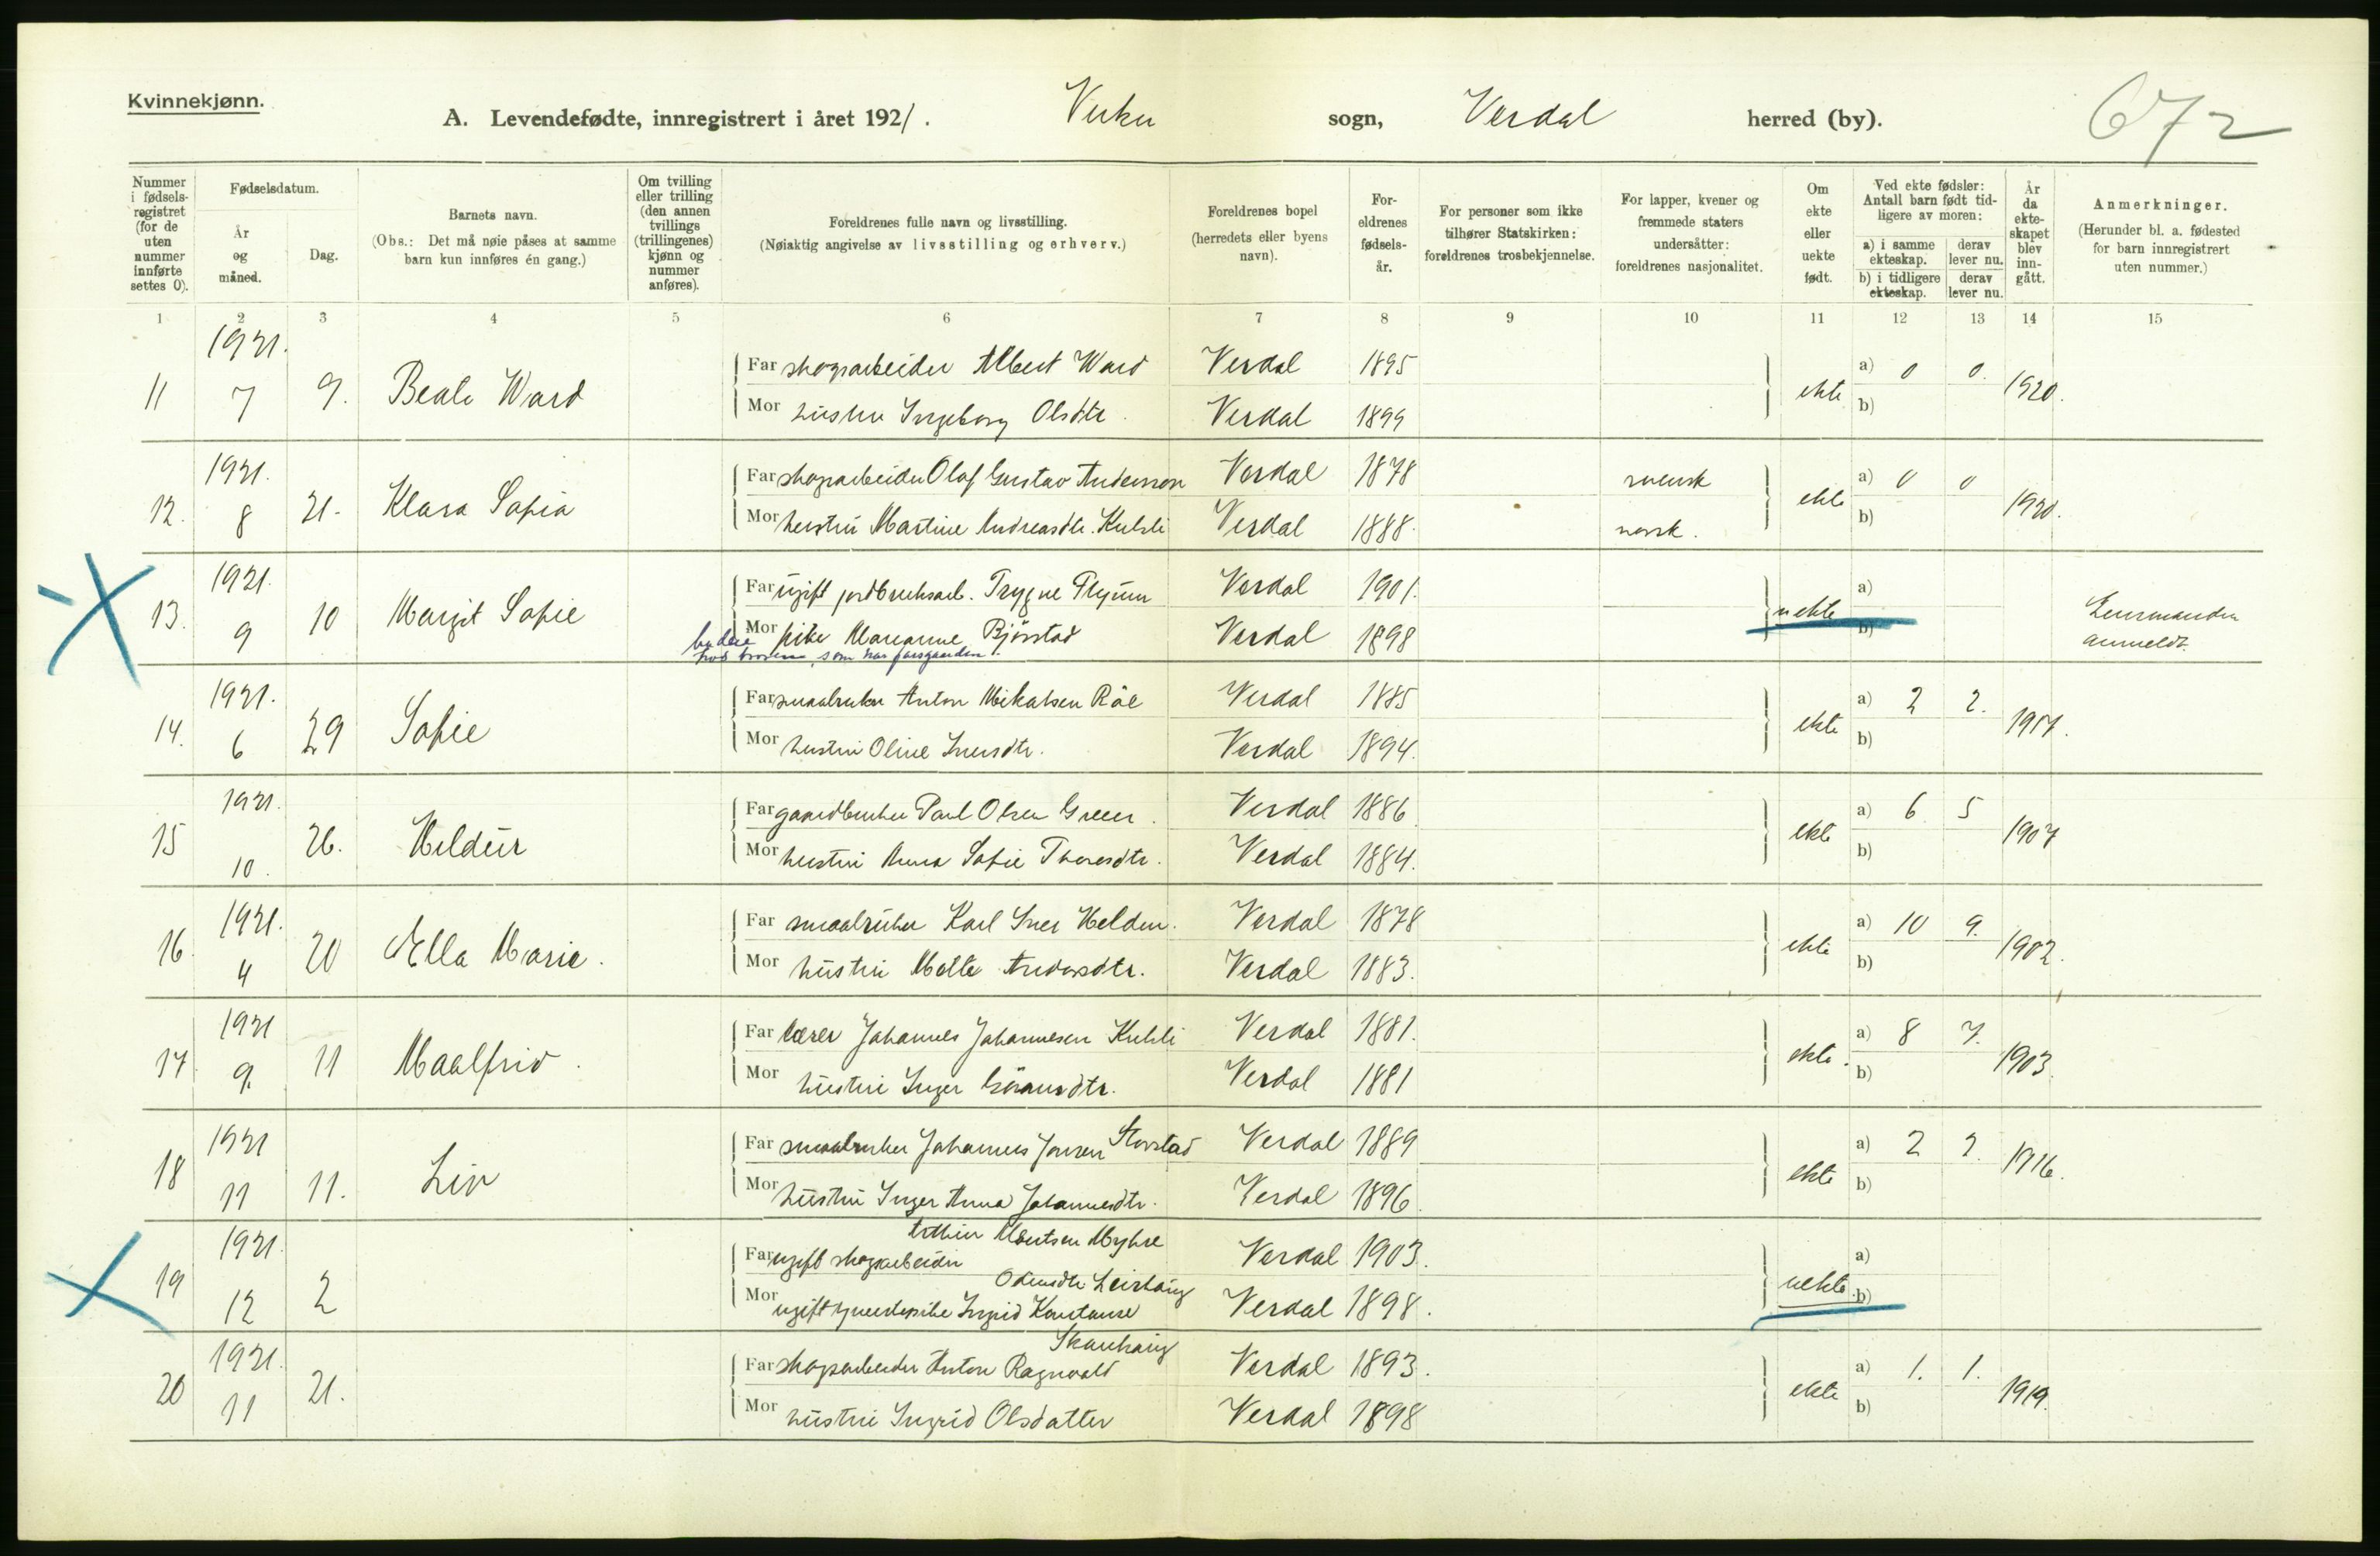 Kvinnekjønn.
A. Levendefødte, innregistrert i året 1921. Vuku sogn, Verdal herred (by).
672
Nummer i fødselsregistret (for de uten nummer innførte settes 0).
Fødselsdatum.
År og måned.
Dag.
Barnets navn.
(Obs.: Det må nøie påses at samme barn kun innføres én gang.)
Om tvilling eller trilling (den annen tvillings (trillingenes) kjønn og nummer anføres).
Foreldrenes fulle navn og livsstilling.
(Nøiaktig angivelse av livsstilling og erhverv.)
Foreldrenes bopel (herredets eller byens navn).
Foreldrenes fødselsår.
For personer som ikke tilhører Statskirken: foreldrenes trosbekjennelse.
For lapper, kvener og fremmede staters undersåtter: foreldrenes nasjonalitet.
Om ekte eller uekte født.
Ved ekte fødsler: Antall barn født tidligere av moren:
a) i samme ekteskap. derav lever nu.
b) i tidligere ekteskap. derav lever nu.
År da ekteskapet blev inngått.
Anmerkninger.
(Herunder bl. a. fødested for barn innregistrert uten nummer.)
1 2 3 4 5 6 7 8 9 10 11 12 13 14 15
11 1921. 7 9. Beale Ward
Far skogarbeider Albert Ward Verdal 1895
Mor hustru Ingeborg Olsdtr. Verdal 1899
ekte a) 0 0. b) 1920.
12. 1921. 8 21. Klara Sofia
Far skogarbeider Olaf Gustav Andersson Verdal 1878 svensk
Mor hustru Martine Andreasdtr. Kulsli Verdal 1888. norsk.
ekte a) 0 0 b) 1920.
13. 1921. 9 10 Margit Sofie
Far ugift jordbruksarb. Trygve Verdal 1901.
Mor pike Marianne Bjørstad Verdal 1898
budeie hos broren, som har farsgaarden.
uekte a) b)
Lensmanden anmeldt.
14. 1921. 6 29 Sofie
Far smaabruker Anton Mikalsen Røe Verdal 1885
Mor hustru Oline Iversdtr. Verdal 1894.
ekte a) 2 2. b) 1917.
15 1921. 10. 26. Hildur
Far gaardbruker Paul Olsen Green. Verdal 1886
Mor hustru Anna Sofie Thoresdtr. Verdal 1884.
ekte a) 6 5 b) 1907
16. 1921. 4 20 Ella Marie.
Far smaabruker Karl Iver Helden. Verdal 1878
Mor hustru Mette Andersdtr. Verdal 1883.
ekte a) 10 9. b) 1902.
17. 1921 9. 11 Maalfrid.
Far lærer Johannes Johannesen Kulsli Verdal 1881.
Mor hustru Inger Göransdtr. Verdal 1881
ekte. a) 8 7. b) 1903.
18 1921 11 11. Liv
Far smaabruker Johannes Jonsen Storstad Verdal 1889
Mor hustru Inger Anna Johannesdtr. Verdal 1896.
ekte a) 2 2. b) 1916.
19 1921. 12 2
Far ugift skogarbeider Myhre Verdal 1903.
Mor ugift Ingrid Konstanse Odinsdtr. Leirhaug Verdal 1898.
uekte a) b)
20 1921. 11 21.
Far skogarbeider Anton Ragnvald Skanhaug Verdal 1893.
Mor hustru Ingrid Olsdatter Verdal 1898
ekte a) 1. 1. b) 1919.